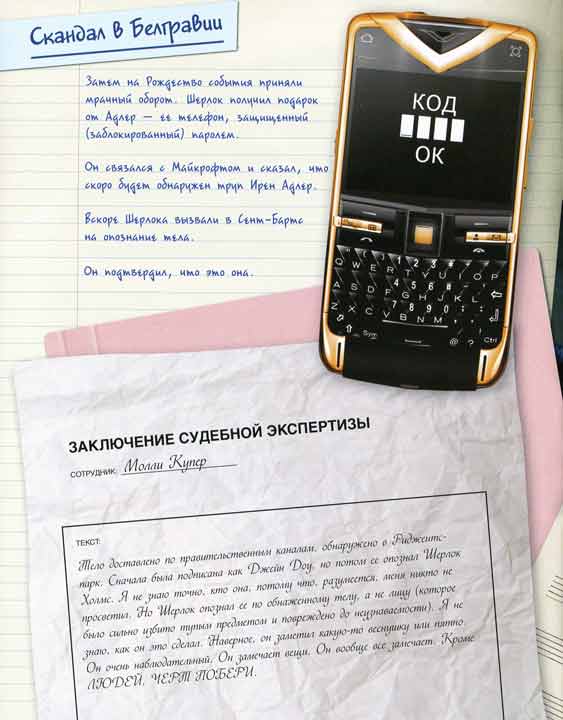 Скандал в Белгравии
Затем на Рождество события приняли
мрачный оборот. Шерлок получил подарок
от Адлер — ее телефон, защищенный
(заблокированный) паролем.
Он связался с Майкрофтом и сказал, что
скоро будет обнаружен труп Ирен Адлер.
Вскоре Шерлока вызвали в Сент-Бартс
на опознание тела.
Он подтвердил, что это она.
КОД
ОК
QWERTYUIOP
ASDFGHJKL
ZXCVBNM
Sym
@ ? Ctrl
ЗАКЛЮЧЕНИЕ СУДЕБНОЙ ЭКСПЕРТИЗЫ
СОТРУДНИК: Молли Купер
ТЕКСТ:
Тело доставлено по правительственным каналам, обнаружено в Риджентс-
парк. Сначала была подписана как Джейн Доу, но потом ее опознал Шерлок
Холмс. Я не знаю точно, кто она, потому что, разумеется, меня никто не
просветил. Но Шерлок опознал ее по обнаженному телу, а не лицу (которое
было сильно избито тупым предметом и повреждено до неузнаваемости). Я не
знаю, как он это сделал. Наверное, он заметил какую-то веснушку или пятно.
Он очень наблюдательный. Он замечает вещи. Он вообще все замечает. Кроме
ЛЮДЕЙ, ЧЕРТ ПОБЕРИ.